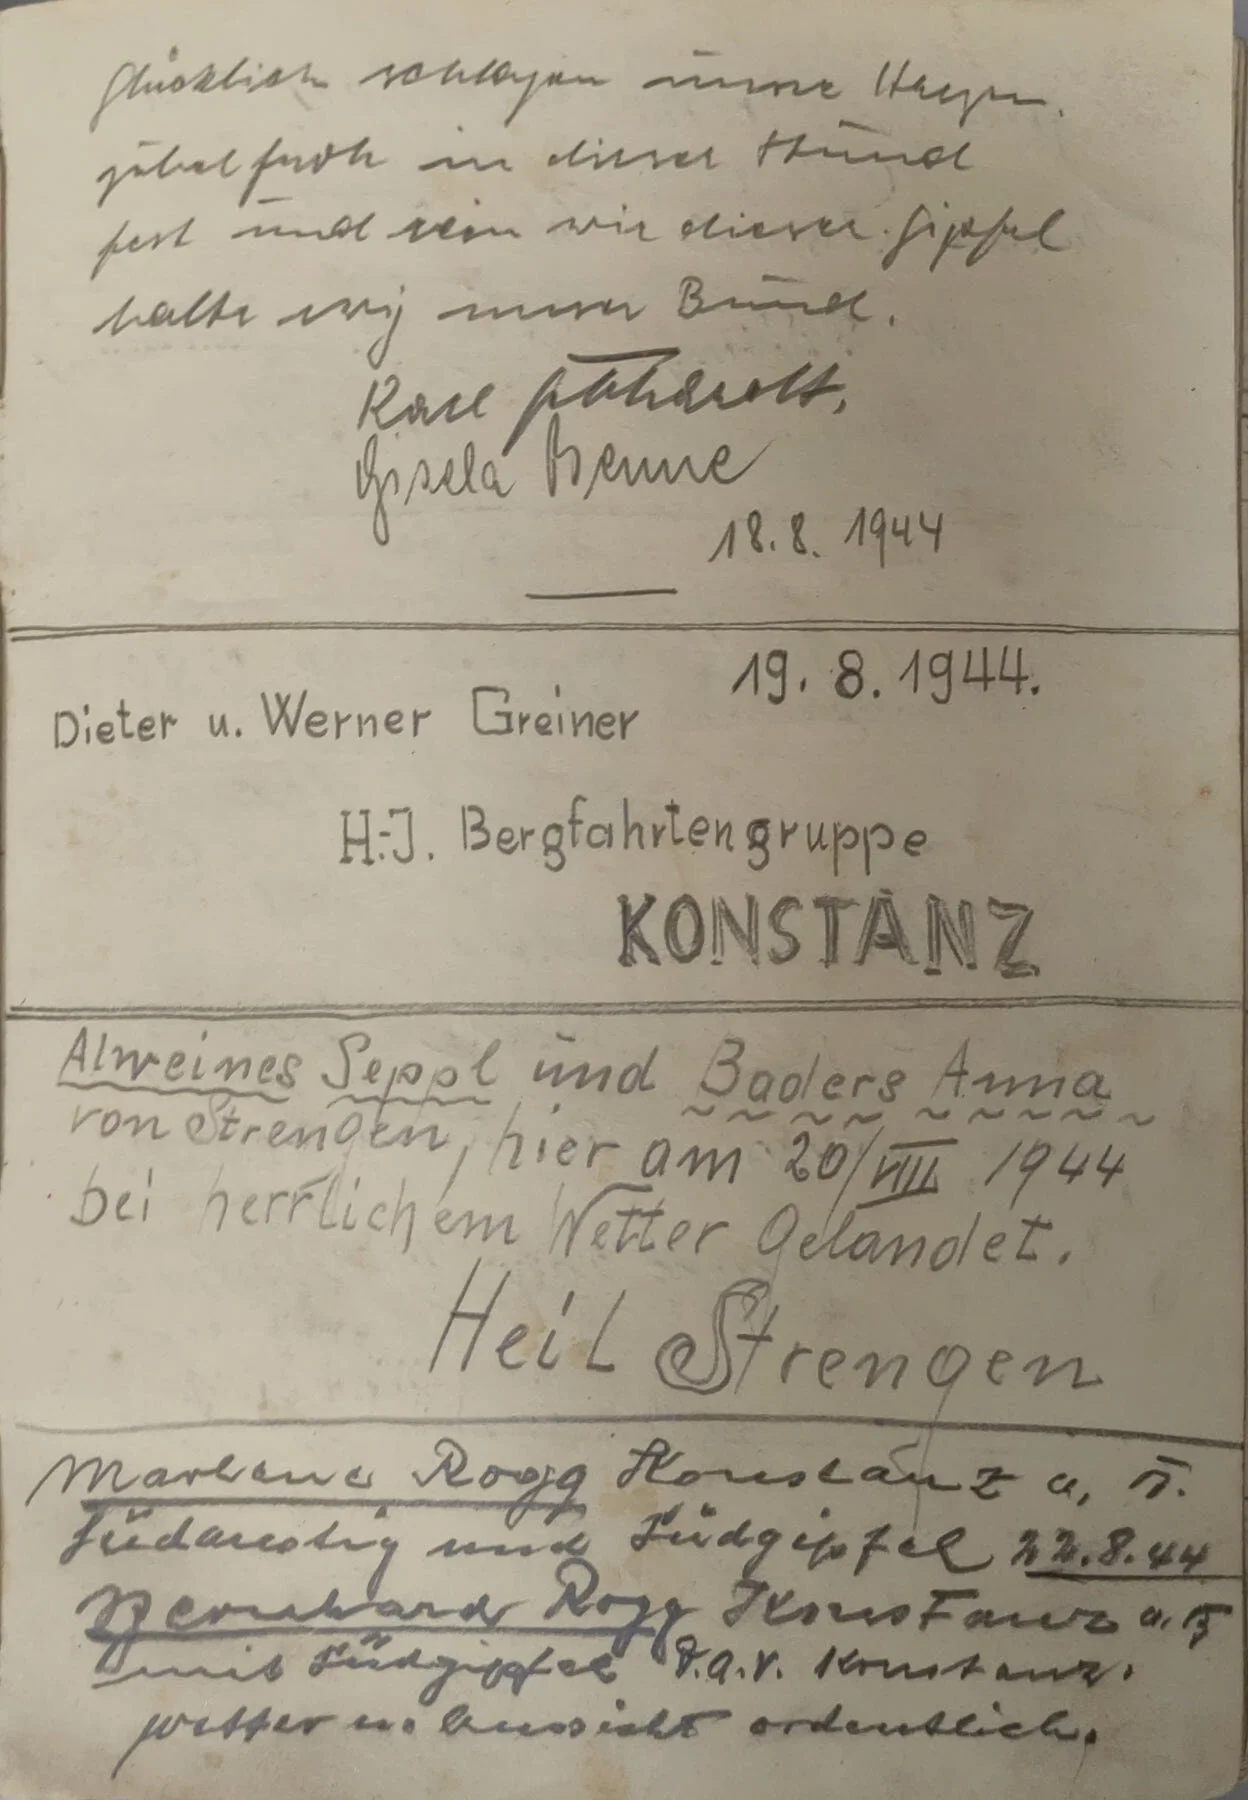 Glücklich schlagen unsre Herzen.
jubelfroh in dieser Stund
fest und rein wie dieser Gipfel
halte ewig unser Bund.
Karl
Gisela Benne
18.8. 1944
19. 8. 1944.
Dieter u. Werner Greiner
H.-J. Bergfahrtengruppe
KONSTANZ
Alweines Seppl und Baders Anna
von Strengen, hier am 20/VIII 1944
bei herrlichem Wetter Gelandet.
Heil Strengen
Marlene Rogg Konstanz a, B.
und Südgipfel 22.8.44
Bernhard Rogg Konstanz a. B
mit Südgipfel D.A.V. Konstanz.
Wetter u. Aussicht ordentlich.